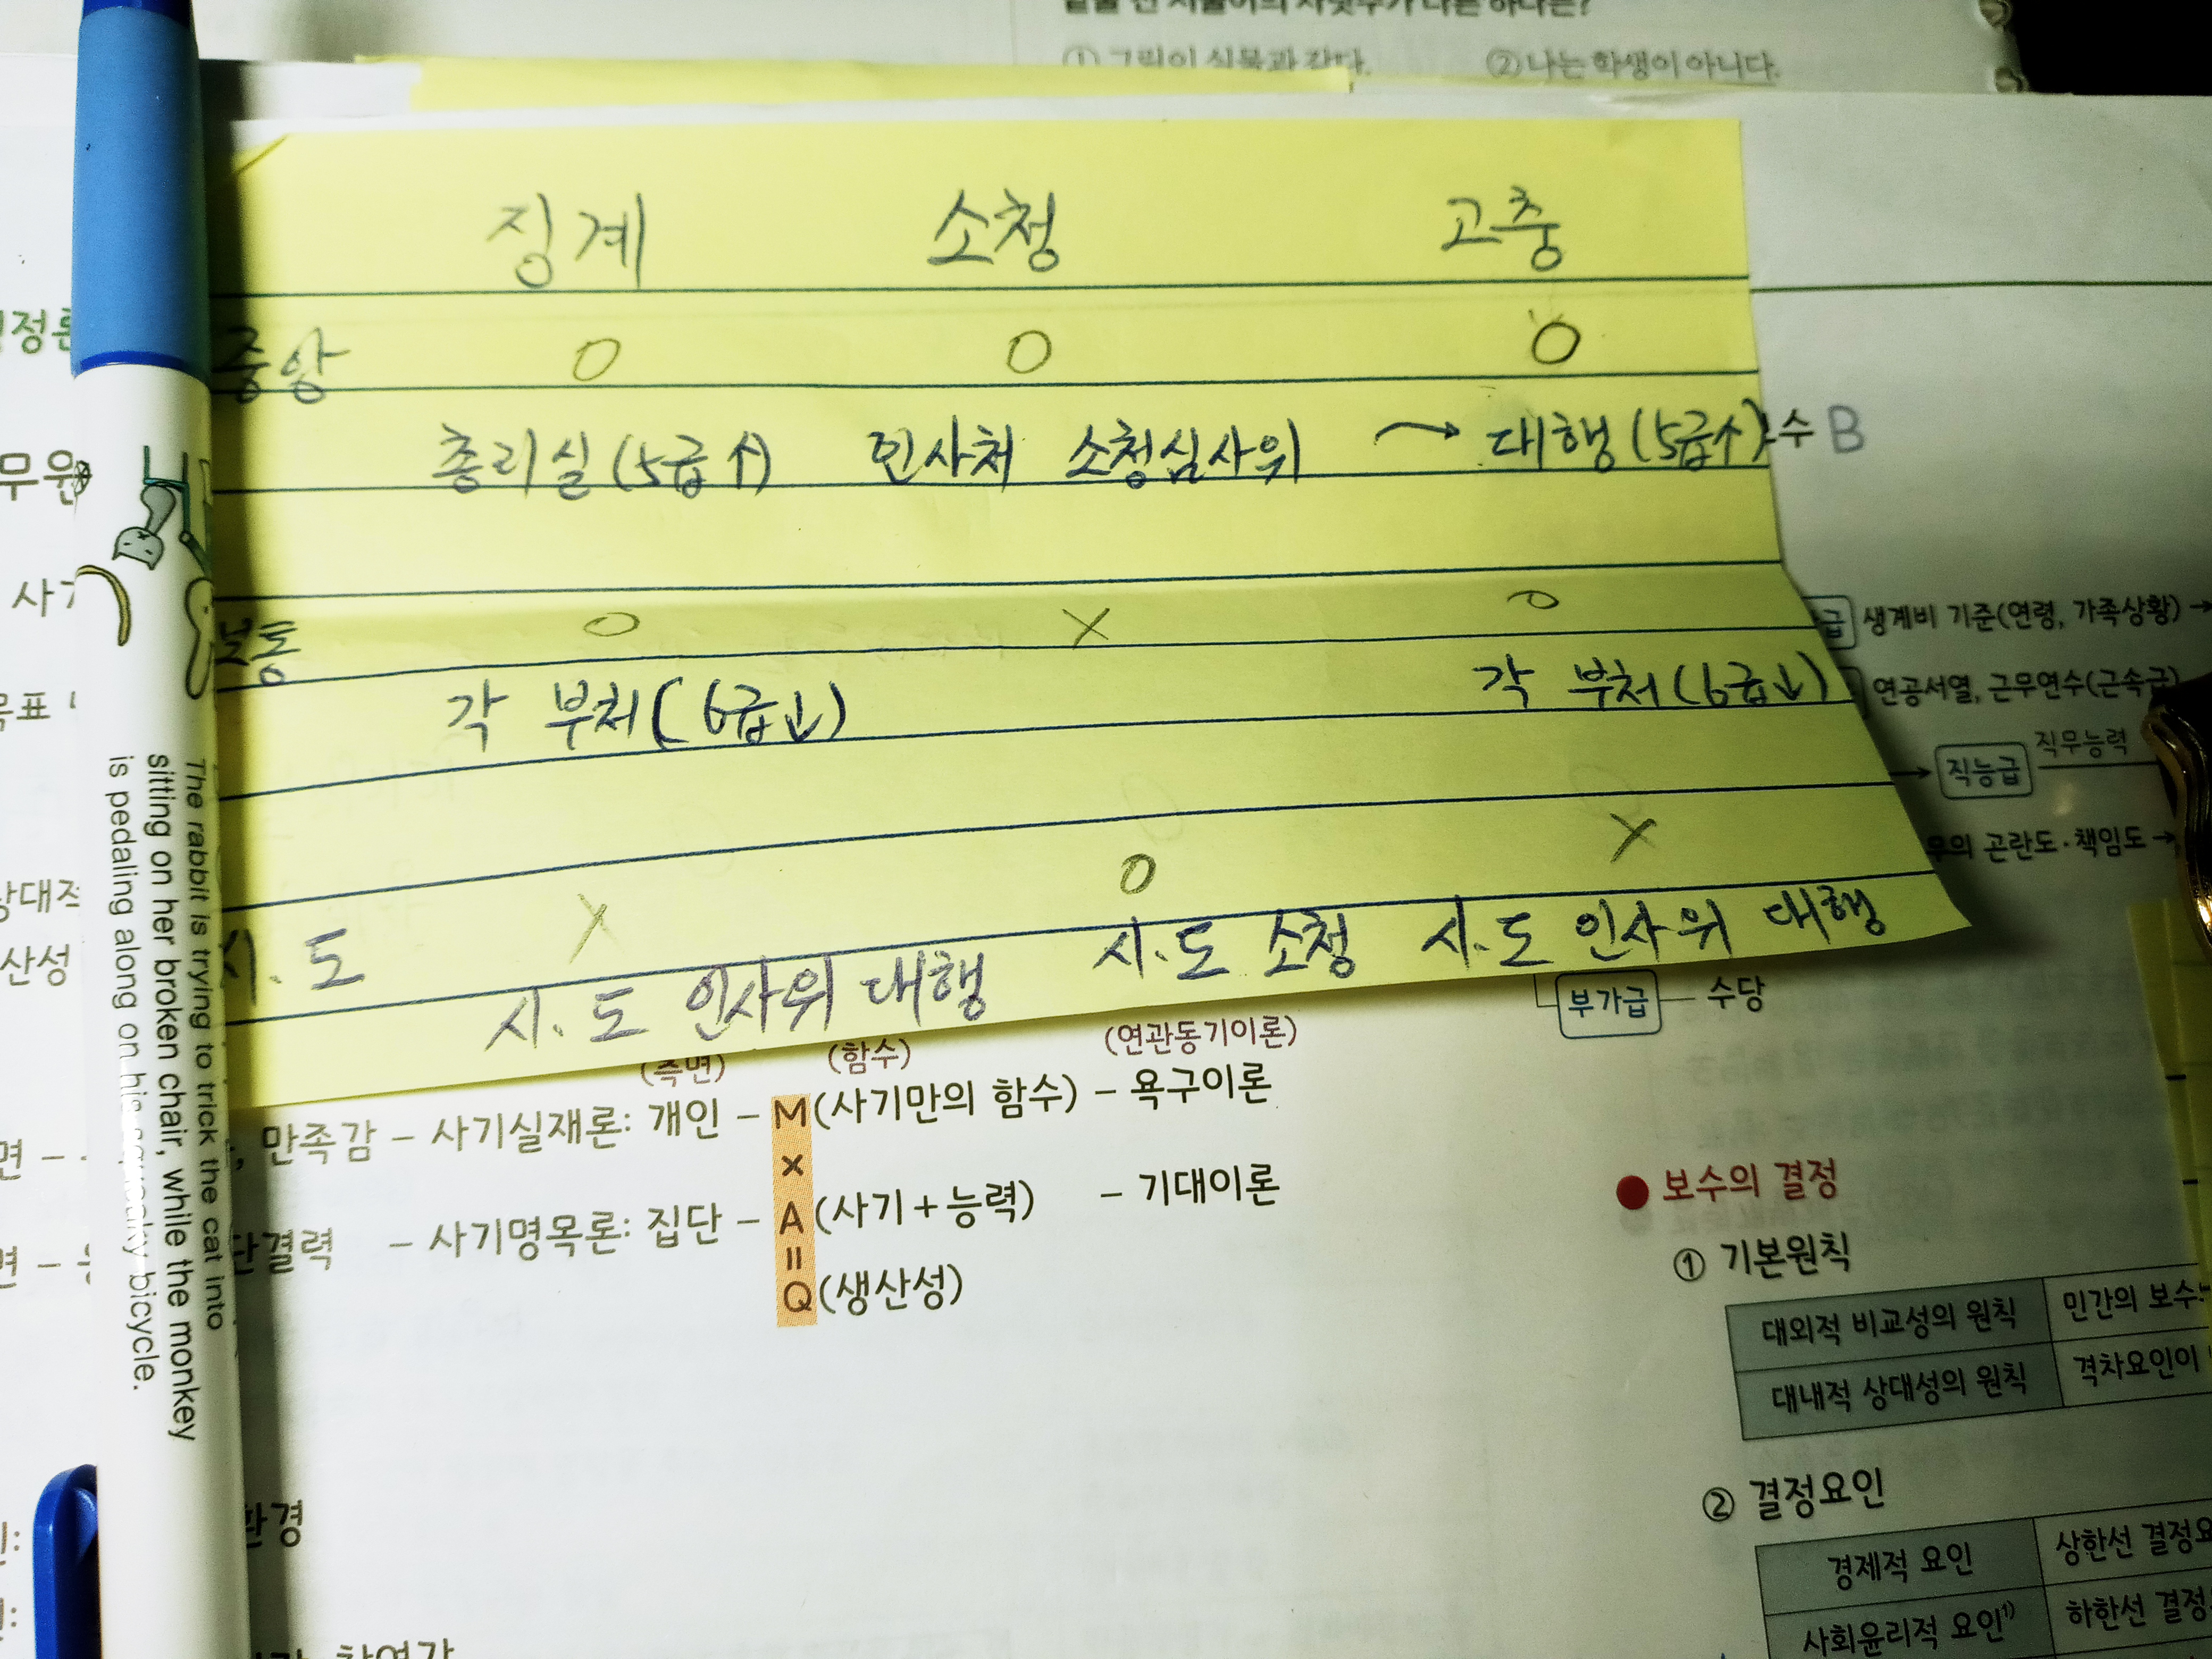 ① 그림이 실물과 같다. ② 나는 학생이 아니다.
징계 소청 고충
중앙 O O O
총리실 (5급↑) 인사처 소청심사위 → 대행 (5급↑) 수 B
보통 O X O
각 부처 (6급↓) 각 부처 (6급↓)
시·도 X O X
시·도 인사위 대행 시·도 소청 시·도 인사위 대행
The rabbit is trying to trick the cat into
sitting on her broken chair, while the monkey
is pedaling along on his squeaky bicycle.
생계비 기준(연령, 가족상황) →
연공서열, 근무연수(근속급)
→ 직능급 직무능력
곤란도·책임도 →
부가급 — 수당
(측면) (함수) (연관동기이론)
만족감 – 사기실재론: 개인 – M(사기만의 함수) – 욕구이론
×
– 사기명목론: 집단 – A(사기+능력) – 기대이론
=
Q(생산성)
● 보수의 결정
① 기본원칙
대외적 비교성의 원칙 민간의
대내적 상대성의 원칙 격차요인이
② 결정요인
경제적 요인 상한선
사회윤리적 요인¹⁾ 하한선